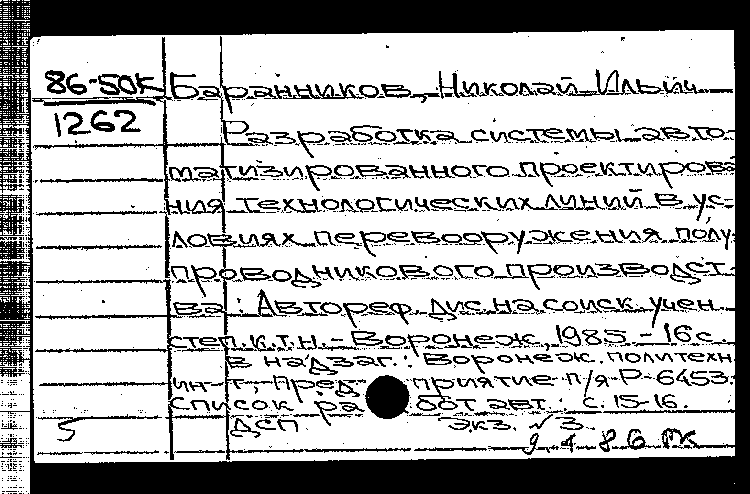 86-50К Баранников, Николай Ильич
1262
Разработка системы авто-
матизированного проектирова
ния технологических линий в ус-
ловиях перевооружения полу-
проводникового производст-
ва: Автореф. дис. на соиск. учен
степ. к.т.н. - Воронеж, 1985 - 16 с.
В надзаг.: Воронеж. политехн.
ин-т, Пред приятие п/я Р-6453.
Список ра бот авт.: с. 15-16.
5 ДСП Экз. № 3.
9 4 86 ПК